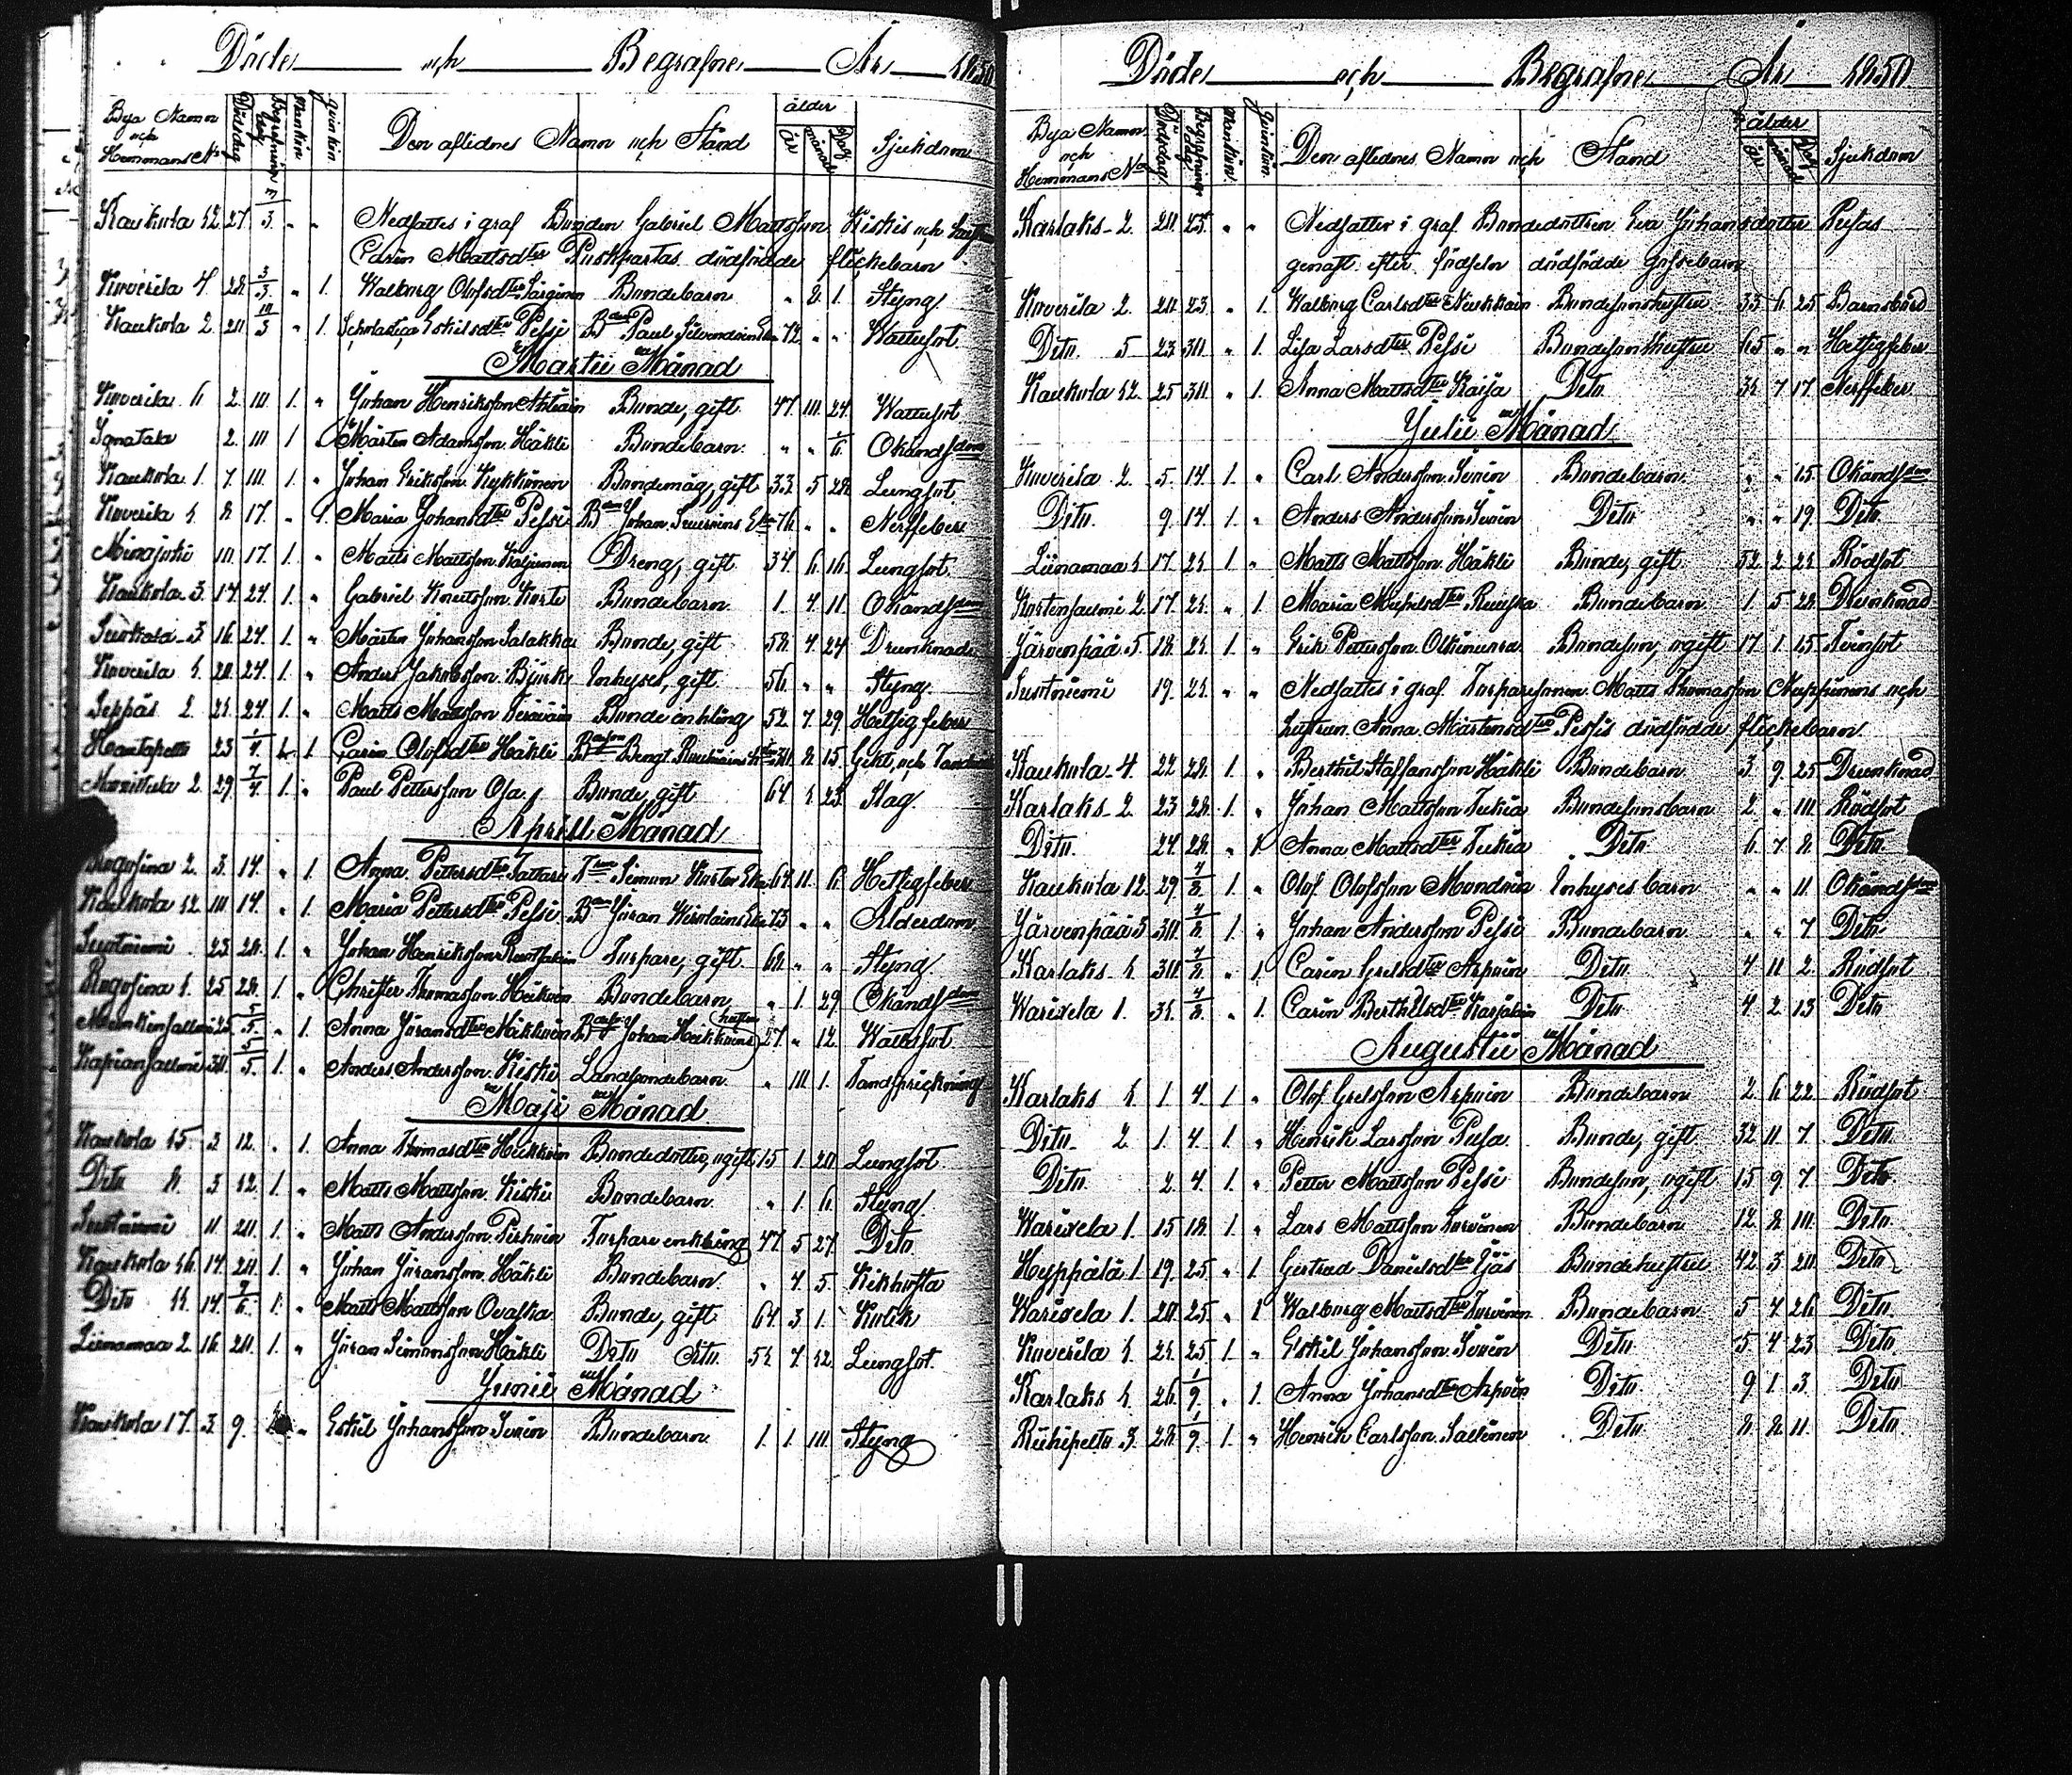 Döde och Begrafne År 1850
Bya Namn och Hemmans No Dödsdag Begrafnings dag Mankön Qvinkön Den aflidnes Namn och Stånd ålder År månad Dag Sjukdom
Kaukola 12. 27. 3/3. " " Nedsattes i graf Bonden Gabriel Mattsson Kiskis och hustrun
Carin Mattsdter Puskpartas dödfödde flickebarn
Koverila 4 28. 3/3. " 1. Walborg Olofsdter Bondebarn " 2. 1. Styng
Kaukola 2. 20. 10/3 " 1. Scholastica Eskilsdter Pessi Bden Paul Enka 72. " " Wattusot
Martii Månad
Koverila 6 2. 10. 1. " Johan Henriksson Bonde, gift 47. 10. 24. Wattusot
Ignatala 2. 10 1 Mårten Adamsson Häkli Bondebarn. " " Okänd sdom
Kaukola 1. 7. 10. 1. " Johan Eriksson Kykkönen Bondemåg, gift 33 5 28 Lungsot
Koverila 1. 8 17. " 1. Maria Johansdter Pessi Johan Enka 76 " " Nerffeber
10. 17. 1. " Matts Mattsson Dreng, gift 34 6 16. Lungsot.
Kaukola 3. 14. 24. 1. " Gabriel Knutsson Korte Bondebarn. 1. 4 11. Okänd sdom
3 16. 24. 1. " Mårten Johansson Salakka Bonde, gift 58. 4 24 Drunknade
Koverila 1. 20. 24. 1. " Anders Jakobsson Björk Inhyses, gift 56 " " Styng.
Seppäs 2. 21. 24. 1. " Matts Mattsson Teräväin Bonde enkling 52. 7. 29 Hetsigfeber
23 1/4. 1 Carin Olofsdter Häkli Bengt 8 15. Gikt, och
2. 29. 7/4. 1. " Paul Pettersson Oja. Bonde, gift 64 1. 23. Slag.
Aprill Månad
Rogosina 2. 3. 14. " 1. Anna Pettersdter Tattari Simon Korte Enka 64 11. 6. Hetsigfeber
Kaukola 12. 10. 14. " 1. Maria Pettersdter Pessi Jöran Enka 73 " " Ålderdom
Suotniemi 23 28. 1. " Johan Henriksson Torpare, gift 68. " " Styng.
Rogosina 1. 25 28. 1. " Christer Thomasson Heikkoin Bondebarn " 1. 29 Okänd sdom
5/5. " 1. Anna Jöransdter Näkkoin Johan Heikkoins hustru 27. " 12. Wattusot.
30. 5/5. 1. " Anders Andersson Kiski Landbondebarn. " 10. 1. Tandsprickning
Maji Månad
Kaukola 15. 2 12. " 1. Anna Thomasdter Heikkoin Bondedotter, ogift 15 1. 20 Lungsot.
Dito 8. 3 12. 1. " Matts Mattsson Kiski Bondebarn. " 1. 6. Styng.
Suotniemi 11. 20. 1. " Matts Andersson Torpare enkling 47. 5 27. Dito
Kaukola 16. 14. 20. 1. " Johan Jöransson Häkli Bondebarn. " 4 5. Kikhosta
Dito 11. 14. 2/6. 1. " Matts Mattsson Ovaska Bonde, gift. 64. 3 1. Kolik
Liinamaa 2. 16. 20. 1. " Jöran Simonsson Häkli Dito dito. 51. 7. 12 Lungsot.
Junii Månad
Kaukola 17. 3. 9. " Eskil Johansson Seuin Bondebarn. 1. 1. 10. Styng
Döde och Begrafne År 1850.
Bya Namn och Hemmans No Dödsdag. Begrafnings dag Mankön. Qvinkön. Den aflidnes Namn och Stånd ålder År. månad Dag Sjukdom
Karlaks 2. 20. 23. " " Nedsattes i graf Bondedottren Eva Johansdotter Pusas
genast efter födseln dödfödde gossebarn
Koverila 2. 20. 23. " 1. Walborg Carlsdter Bondesonshustru 33 6 25 Barnsbörd
Dito. 5 23 30. " 1. Lisa Larsdter Pessi Bondesonshustru 65 " " Hetsigfeber
Kaukola 12. 25 30. " 1. Anna Mattsdter Kaija Dito. 31. 7 17. Nerffeber
Julii Månad
Koverila 2 5. 14. 1. " Carl Andersson Seuin Bondebarn " " 15. Okänd sdom
Dito. 9. 14. 1. " Anders Andersson Seuin Dito " " 19. Dito
Liinamaa 1 17. 21. 1 " Matts Mattsson Häkli Bonde, gift 52 2 21. Rödsot
Kortensalmi 2. 17. 21. " 1 Maria Bondebarn 1. 5 28. Drunknad
Järvenpää 5. 18. 21. 1. " Erik Pettersson Olkinuora Bondeson, ogift 17 1. 15. Tvinsot
Suotniemi 19. 21. " " Nedsattes i graf Torparesonen Matts Thomasson Nuppinens och
hustrun Anna Mårtensdter Pessis dödfödde flickebarn.
Kaukola 4. 22 28. 1. " Berthil Staffansson Häkli Bondebarn 3 9. 25 Drunknad
Karlaks 2. 23 28. 1. " Johan Mattsson Tukia Bondesonsbarn 2. " 10. Rödsot
Dito. 24. 28. " 1. Anna Mattsdter Tukia Dito 6 7 8. Dito
Kaukola 12. 29. 4/8. 1. " Olof Olofsson Mondoin Inhyses barn " " 11. Okänd sdom
Järvenpää 3 30. 4/8 1. " Johan Andersson Pessi Bondebarn. " " 7. Dito
Karlaks 1. 30. 4/8. " 1 Carin Grelsdter Arpoin Dito 4 11 2. Rödsot
Warixela 1. 31. 4/8. " 1. Carin Berthilsdter Karjalain Dito 4 2. 13. Dito
Augustii Månad
Karlaks 1. 1 4. 1 " Olof Grelsson Arpoin Bondebarn 2 6 22. Rödsot
Dito. 2. 1. 4. 1. " Henrik Larsson Pusa. Bonde, gift 32 11 7. Dito
Dito. 2. 4. 1. " Petter Mattsson Pessi Bondeson, ogift 15 9 7. Dito
Warixela 1. 15 18. 1. " Lars Mattsson Torvinen Bondebarn 12. 8. 10. Dito
Heppälä 1 19. 25. " 1. Gertrud Danielsdter Ijäs Bondehustru 42 3 20. Dito
Warixela 1. 20. 25. " 1 Walborg Mattsdter Torvinen Bondebarn 5 7 26 Dito
Koverila 1. 21. 25. 1. " Eskil Johansson Seuin Dito 5. 4 23 Dito
Karlaks 1. 26. 1/9. " 1. Anna Johansdter Arpoin Dito 9 1. 3. Dito
Riihipelto 3. 28. 1/9. 1. " Henrik Carlsson Sallinen Dito 8. 8. 11. Dito